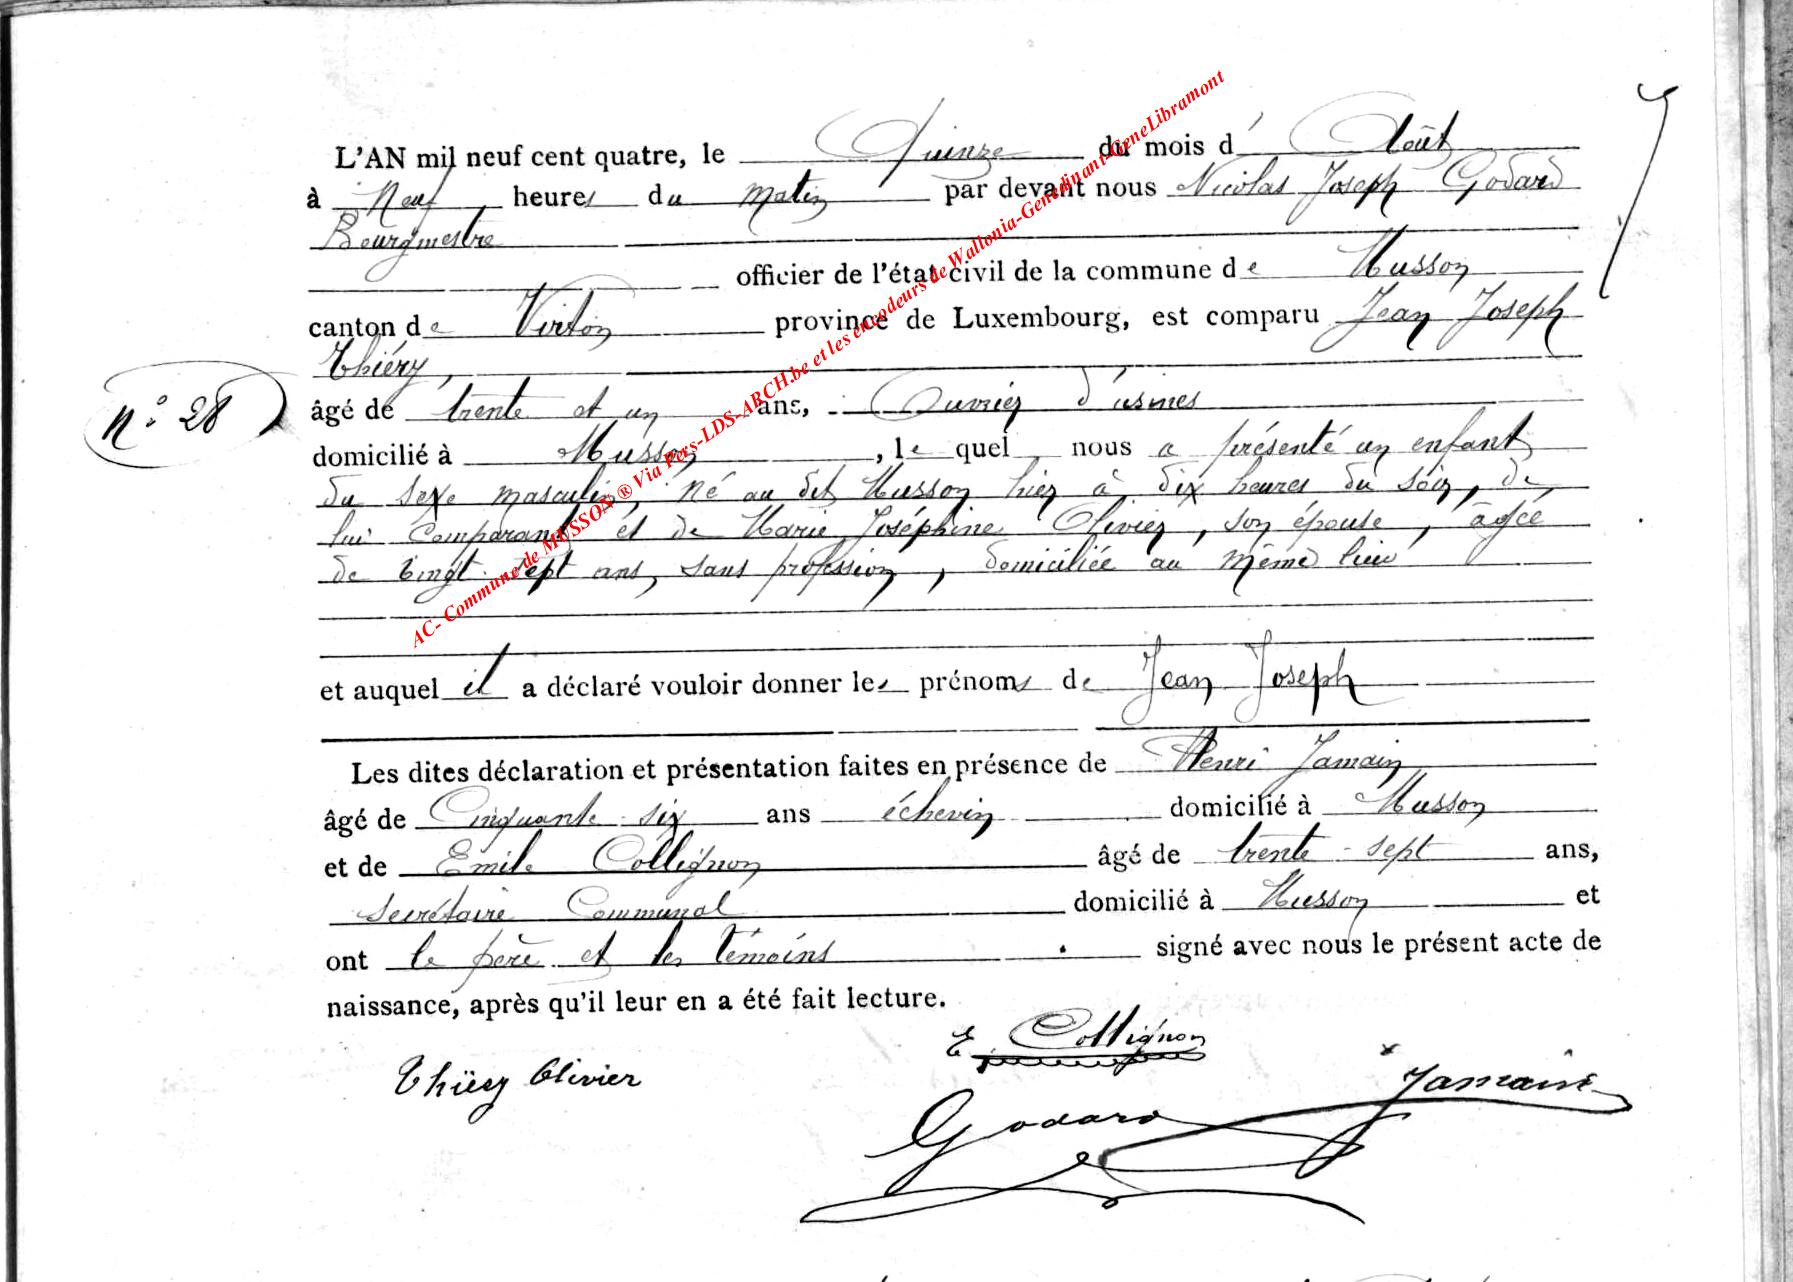 L'AN mil neuf cent quatre, le Quinze du mois d' Août
à Neuf heures du matin par devant nous Nicolas Joseph Godard
Bourgmestre
officier de l'état civil de la commune de Musson
canton de Virton province de Luxembourg, est comparu Jean Joseph
Thiéry,
âgé de trente et un ans, Ouvrier d'usines
n° 28
domicilié à Musson, le quel nous a présenté un enfant
du sexe masculin, né au dit Musson hier à dix heures du soir, de
lui comparant et de Marie Joséphine Olivier, son épouse, âgée
de vingt-sept ans, sans profession, domiciliée au même lieu
et auquel il a déclaré vouloir donner les prénoms de Jean Joseph
Les dites déclaration et présentation faites en présence de Henri Jamain
âgé de Cinquante-six ans échevin domicilié à Musson
et de Emile Collignon âgé de trente-sept ans,
secrétaire Communal domicilié à Musson et
ont le père et les témoins signé avec nous le présent acte de
naissance, après qu'il leur en a été fait lecture.
E. Collignon
Thiéry Olivier
Jamain
Godard
AC- Commune de MUSSON ® Via Pers-LDS-ARCH.be et les encodeurs de Wallonia-Genedinant-GeneLibramont